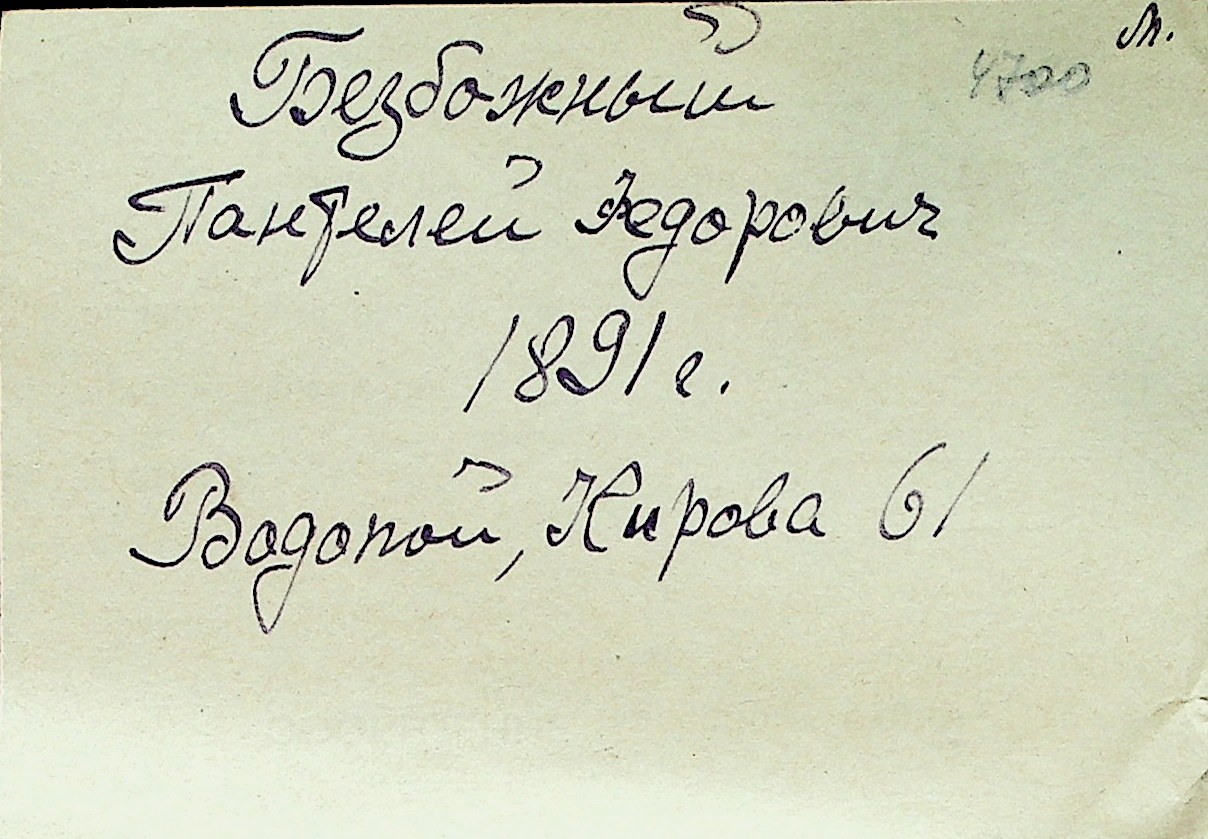 м.
4700
Безбожный
Пантелей Федорович
1891 г.
Водопой, Кирова 61